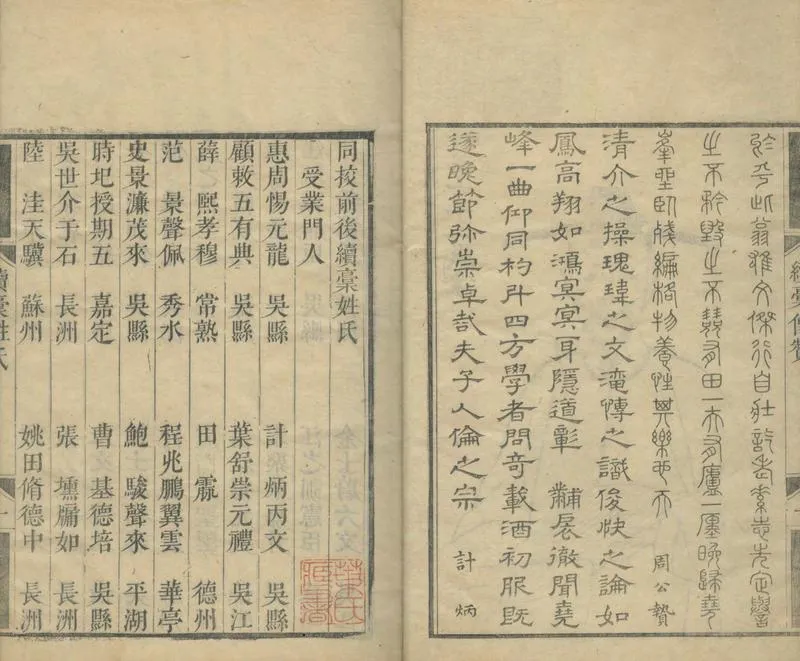 於乎此翁雄文傑行自壯詎老素志先定譽
之不矜毀之不 有田一 有廬一廛晚歸堯
峯 臥 殘編格物養性其樂也天 周公贄
清介之操瑰瑋之文淹博之識俊快之論如
鳳高翔如鴻冥冥身隱道彰黼扆徹聞堯
峰一曲仰同杓斗四方學者問奇載酒初服既
遂晚節弥崇卓哉夫子人倫之宗 計炳
同挍前後續稾姓氏
受業門人
惠周惕元龍 吳縣 計炳丙文 吳縣
顧敕五有典 吳縣 葉舒崇元禮 吳江
薛熙孝穆 常熟 田霢 德州
范景聲佩 秀水 程兆鵬翼雲 華亭
史景濂茂來 吳縣 鮑駿聲來 平湖
時圯授期五 嘉定 曹基德培 吳縣
吳世介于石 長洲 張壎牖如 長洲
陸洼天驥 蘇州 姚田脩德中 長洲
續稾姓氏